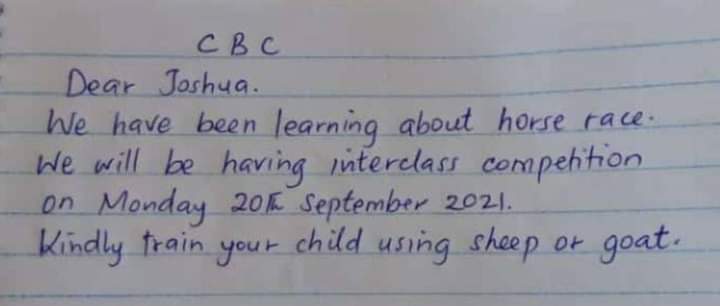 CBC
Dear Joshua.
We have been learning about horse race.
We will be having interclass competition
on Monday 20th September 2021.
Kindly train your child using sheep or goat.